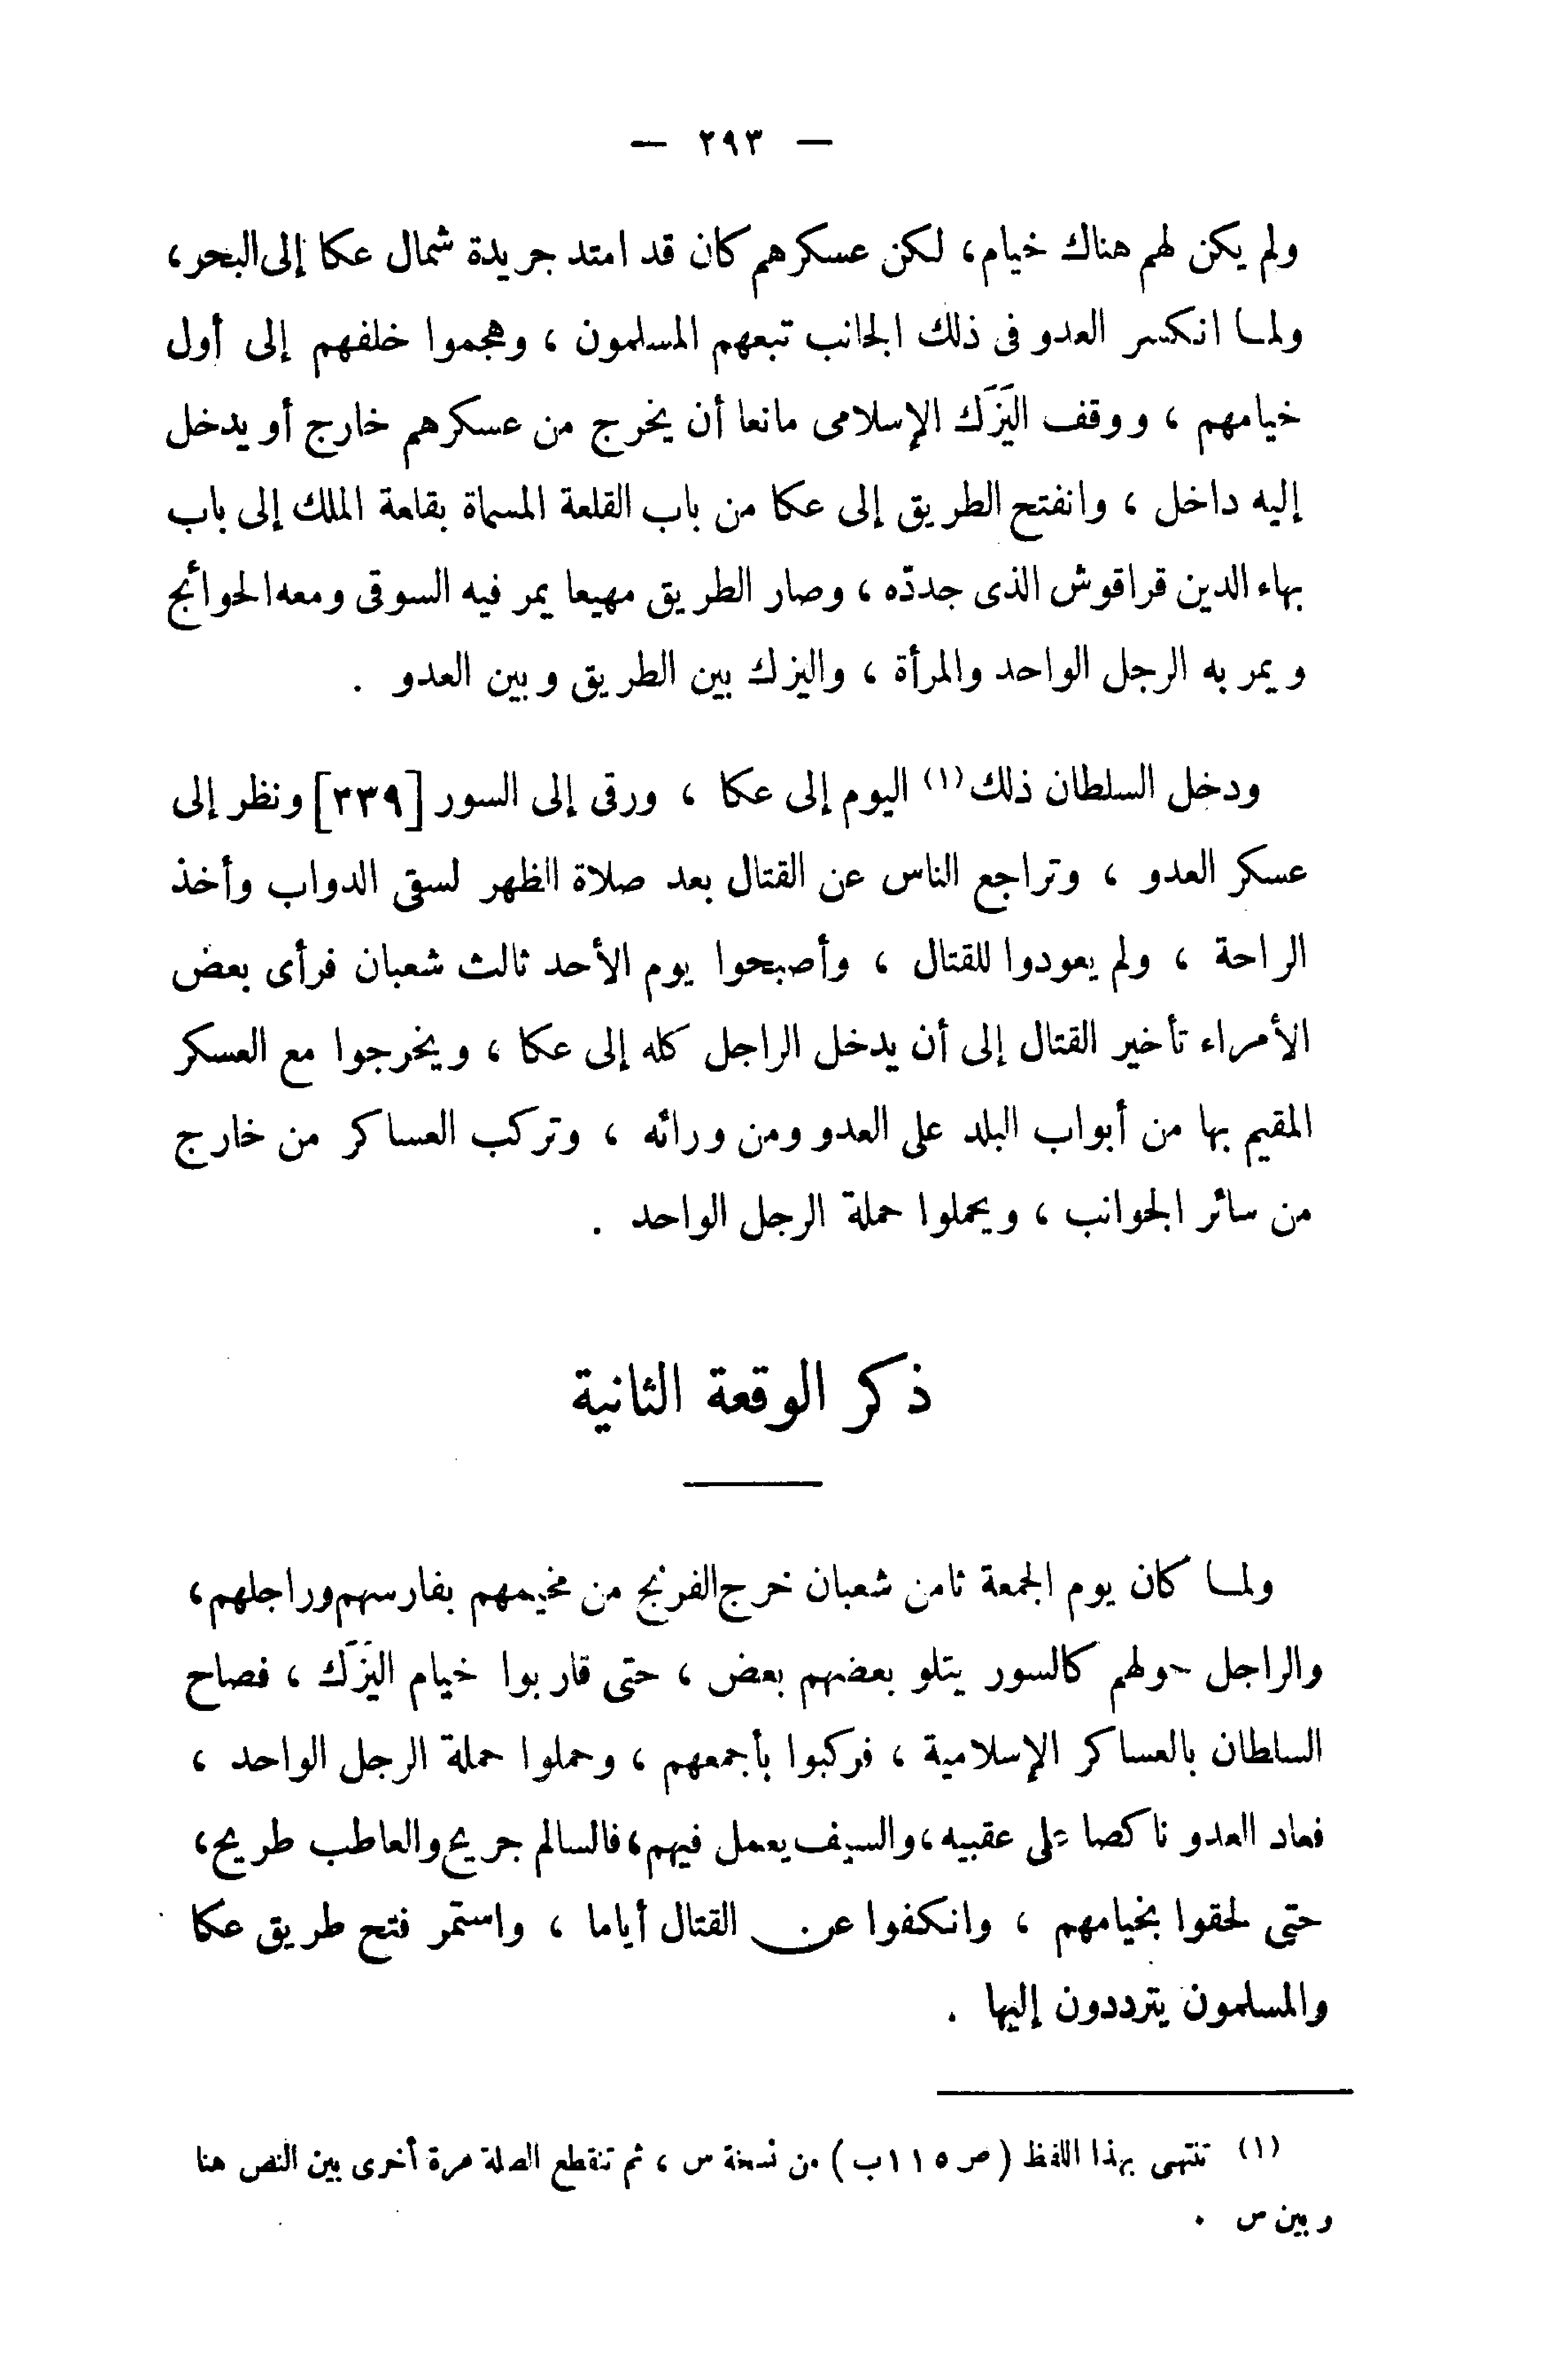 — ٢٩٣ —
ولم يكن لهم هناك خيام، لكن عسكرهم كان قد امتد جريدة شمال عكا إلى البحر،
ولمـا انكسر العدو فى ذلك الجانب تبعهم المسلمون ، وهجموا خلفهم إلى أول
خيامهم ، ووقف اليَزَك الإسلامى مانعا أن يخرج من عسكرهم خارج أو يدخل
إليه داخل ، وانفتح الطريق إلى عكا من باب القلعة المسماة بقلعة الملك إلى باب
بهاء الدين قراقوش الذى جدّده ، وصار الطريق مهيعا يمر فيه السوقى ومعه الحوائج
ويمر به الرجل الواحد والمرأة ، واليزك بين الطريق وبين العدو .
ودخل السلطان ذلك (١) اليوم إلى عكا ، ورقى إلى السور [٣٣٩] ونظر إلى
عسكر العدو ، وتراجع الناس عن القتال بعد صلاة الظهر لسقى الدواب وأخذ
الراحة ، ولم يعودوا للقتال ، وأصبحوا يوم الأحد ثالث شعبان فرأى بعض
الأمراء تأخير القتال إلى أن يدخل الراجل كله إلى عكا ، ويخرجوا مع العسكر
المقيم بها من أبواب البلد على العدو ومن ورائه ، وتركب العساكر من خارج
من سائر الجوانب ، ويحملوا حملة الرجل الواحد .
ذكر الوقعة الثانية
ولمـا كان يوم الجمعة ثامن شعبان خرج الفرنج من مخيمهم بفارسهم وراجلهم،
والراجل حولهم كالسور يتلو بعضهم بعض ، حتى قاربوا خيام اليَزَك ، فصاح
السلطان بالعساكر الإسلامية ، فركبوا بأجمعهم ، وحملوا حملة الرجل الواحد ،
فعاد العدو ناكصا على عقبيه، والسيف يعمل فيهم، فالسالم جريح والعاطب طريح،
حتى لحقوا بخيامهم ، وانكفوا عن القتال أياما ، واستمر فتح طريق عكا
والمسلمون يترددون إليها .
(١) تنتهى بهذا اللفظ ( ص ١١٥ب ) من نسخة س ، ثم تنقطع الصلة مرة أخرى بين النص هنا
وبين س .